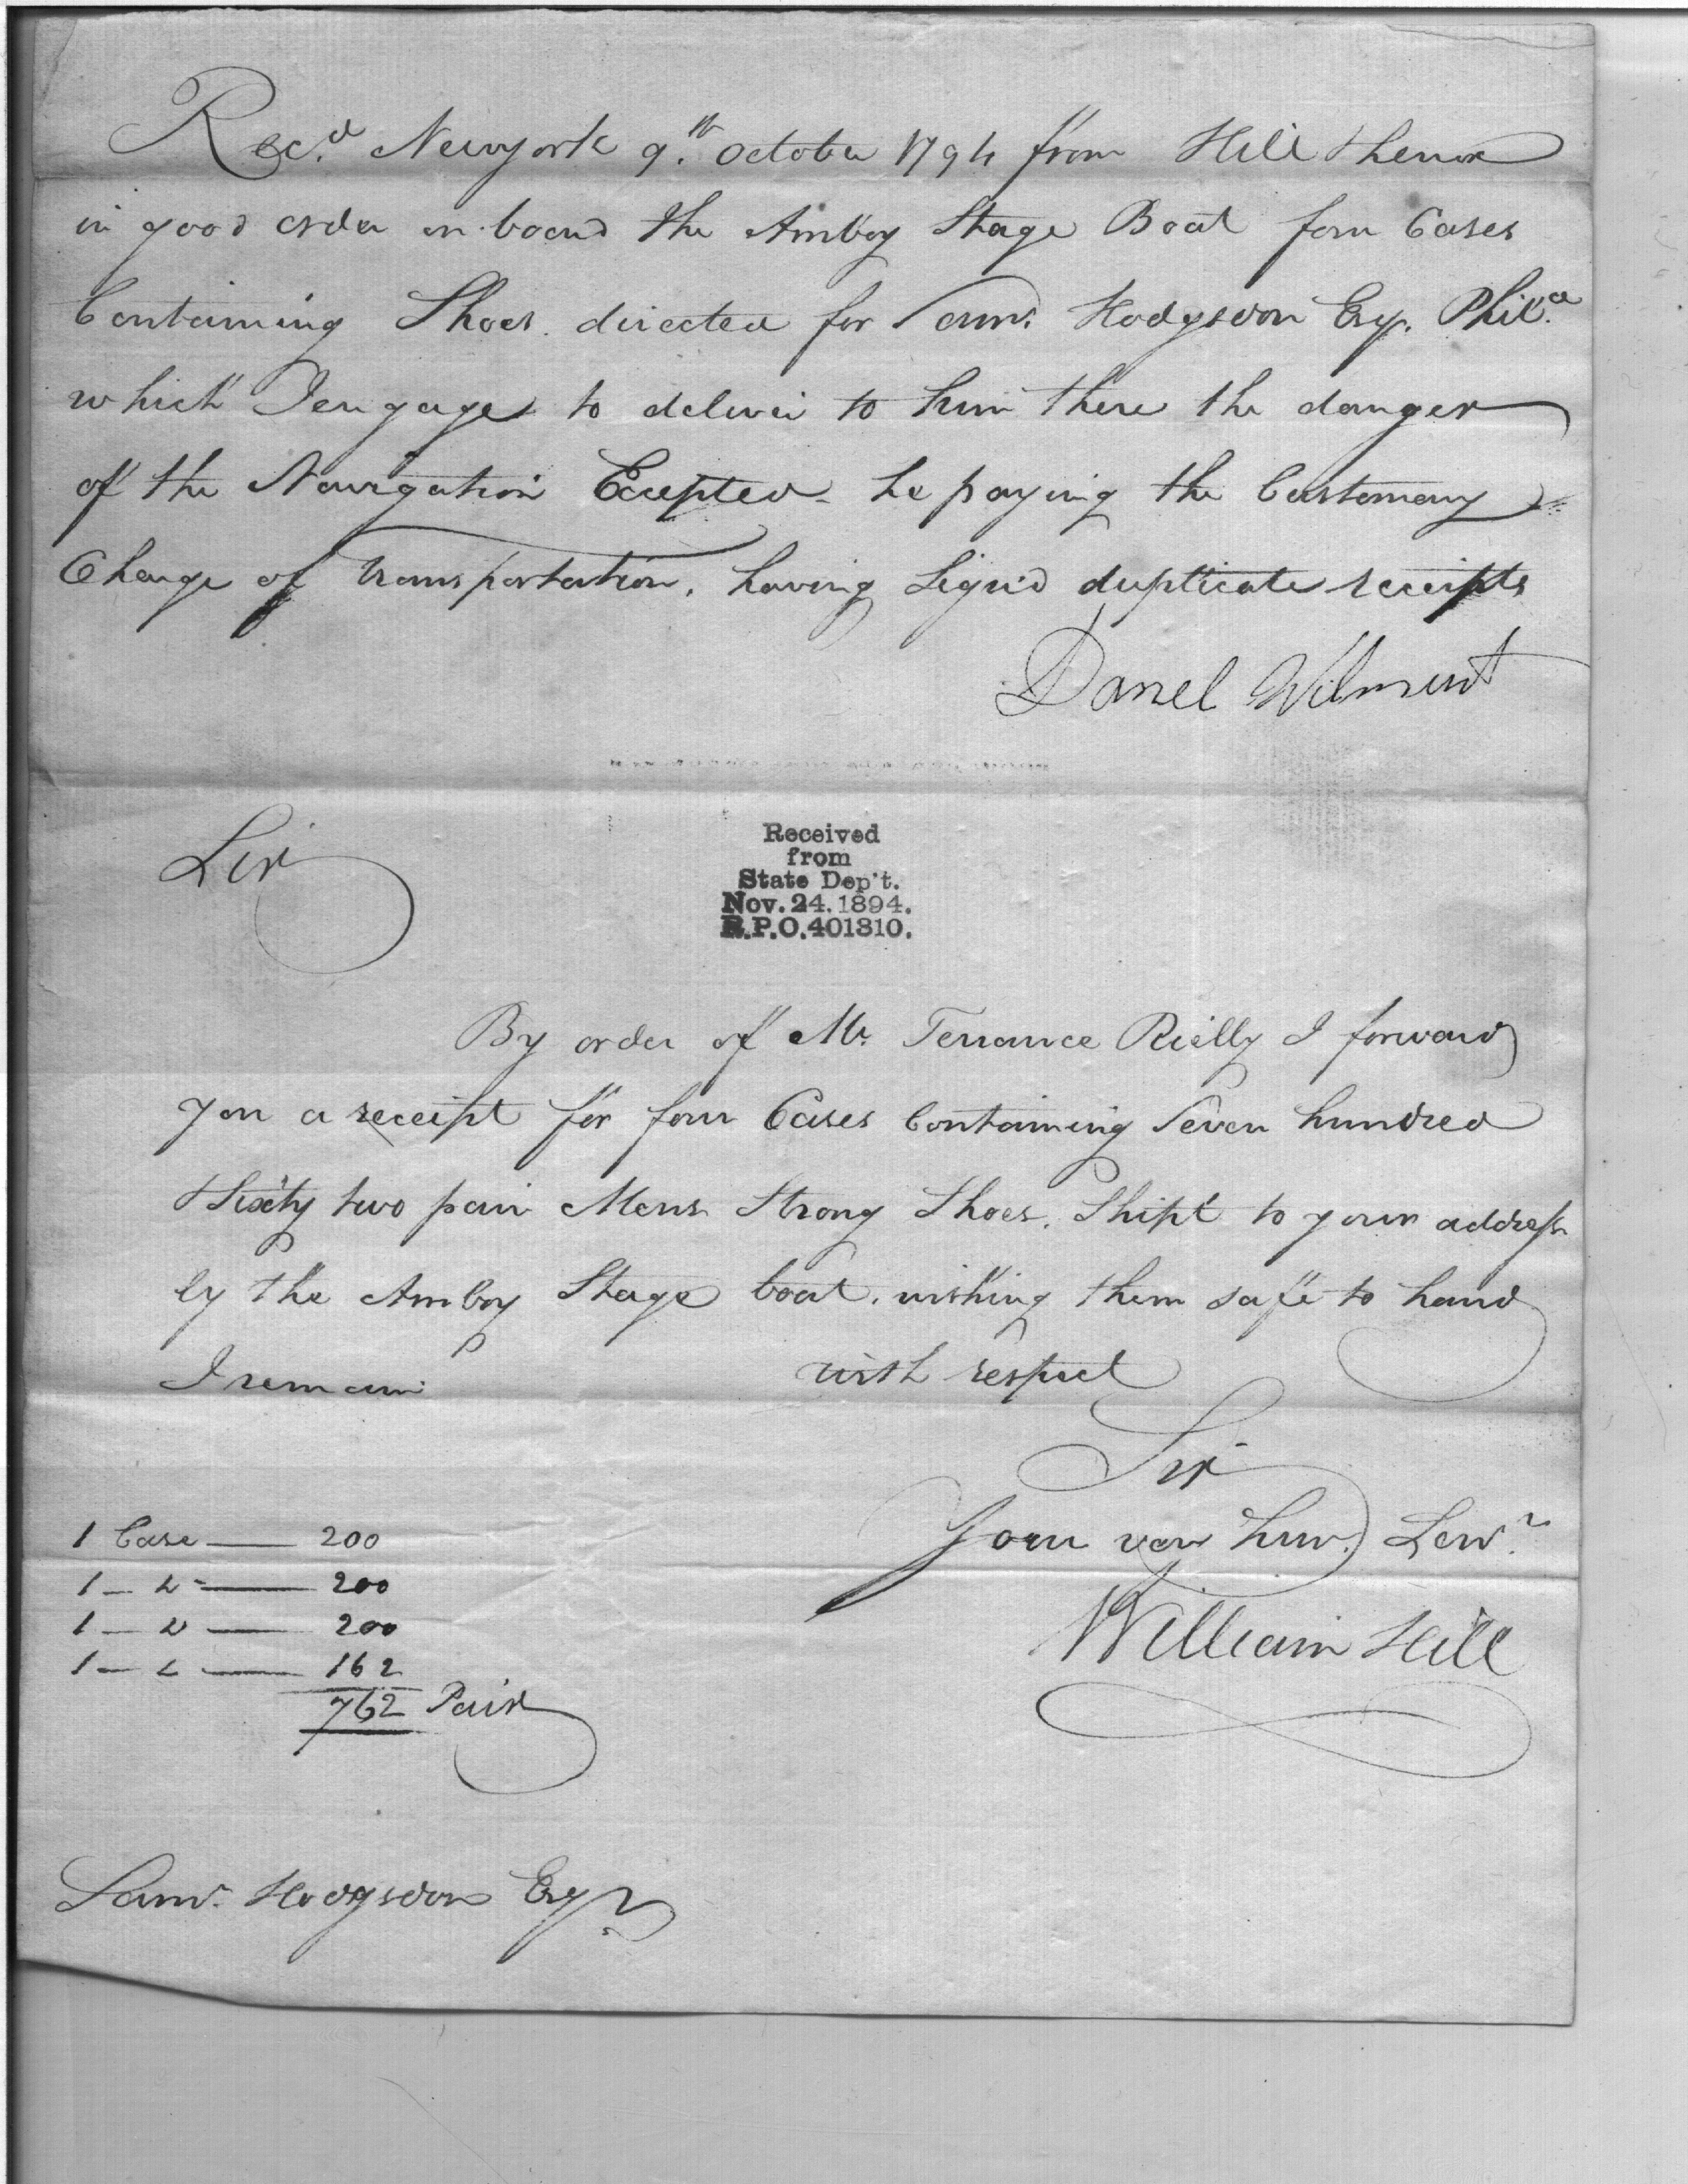 Rec.d Newyork 9.th October 1794 from Hill &
in good order on board the Amboy Stage Boat four Cases
Containing Shoes. directed for Saml. Hodgsdon Esq. Phila.
which I engage to deliver to him there the danger
of the Navigation Excepted - he paying the Customary
Charge of transportation. having Sign'd duplicate receipts
Daniel Wilmurt
Sir
Received
from
State Dep't.
Nov. 24. 1894.
R.P.O. 401310.
By order of Mr. Terrance Rielly I forward
you a receipt for four Cases Containing Seven hundred
& Sixty two pair Mens Strong Shoes. Shipt to your address
by the Amboy Stage boat. wishing them safe to hand
I remain with respect
Sir
Your very hum. Serv.t
William Hill
1 Case — 200
1 — Do — 200
1 — Do — 200
1 — Do — 162
762 Pair
Saml. Hodgsdon Esqr.